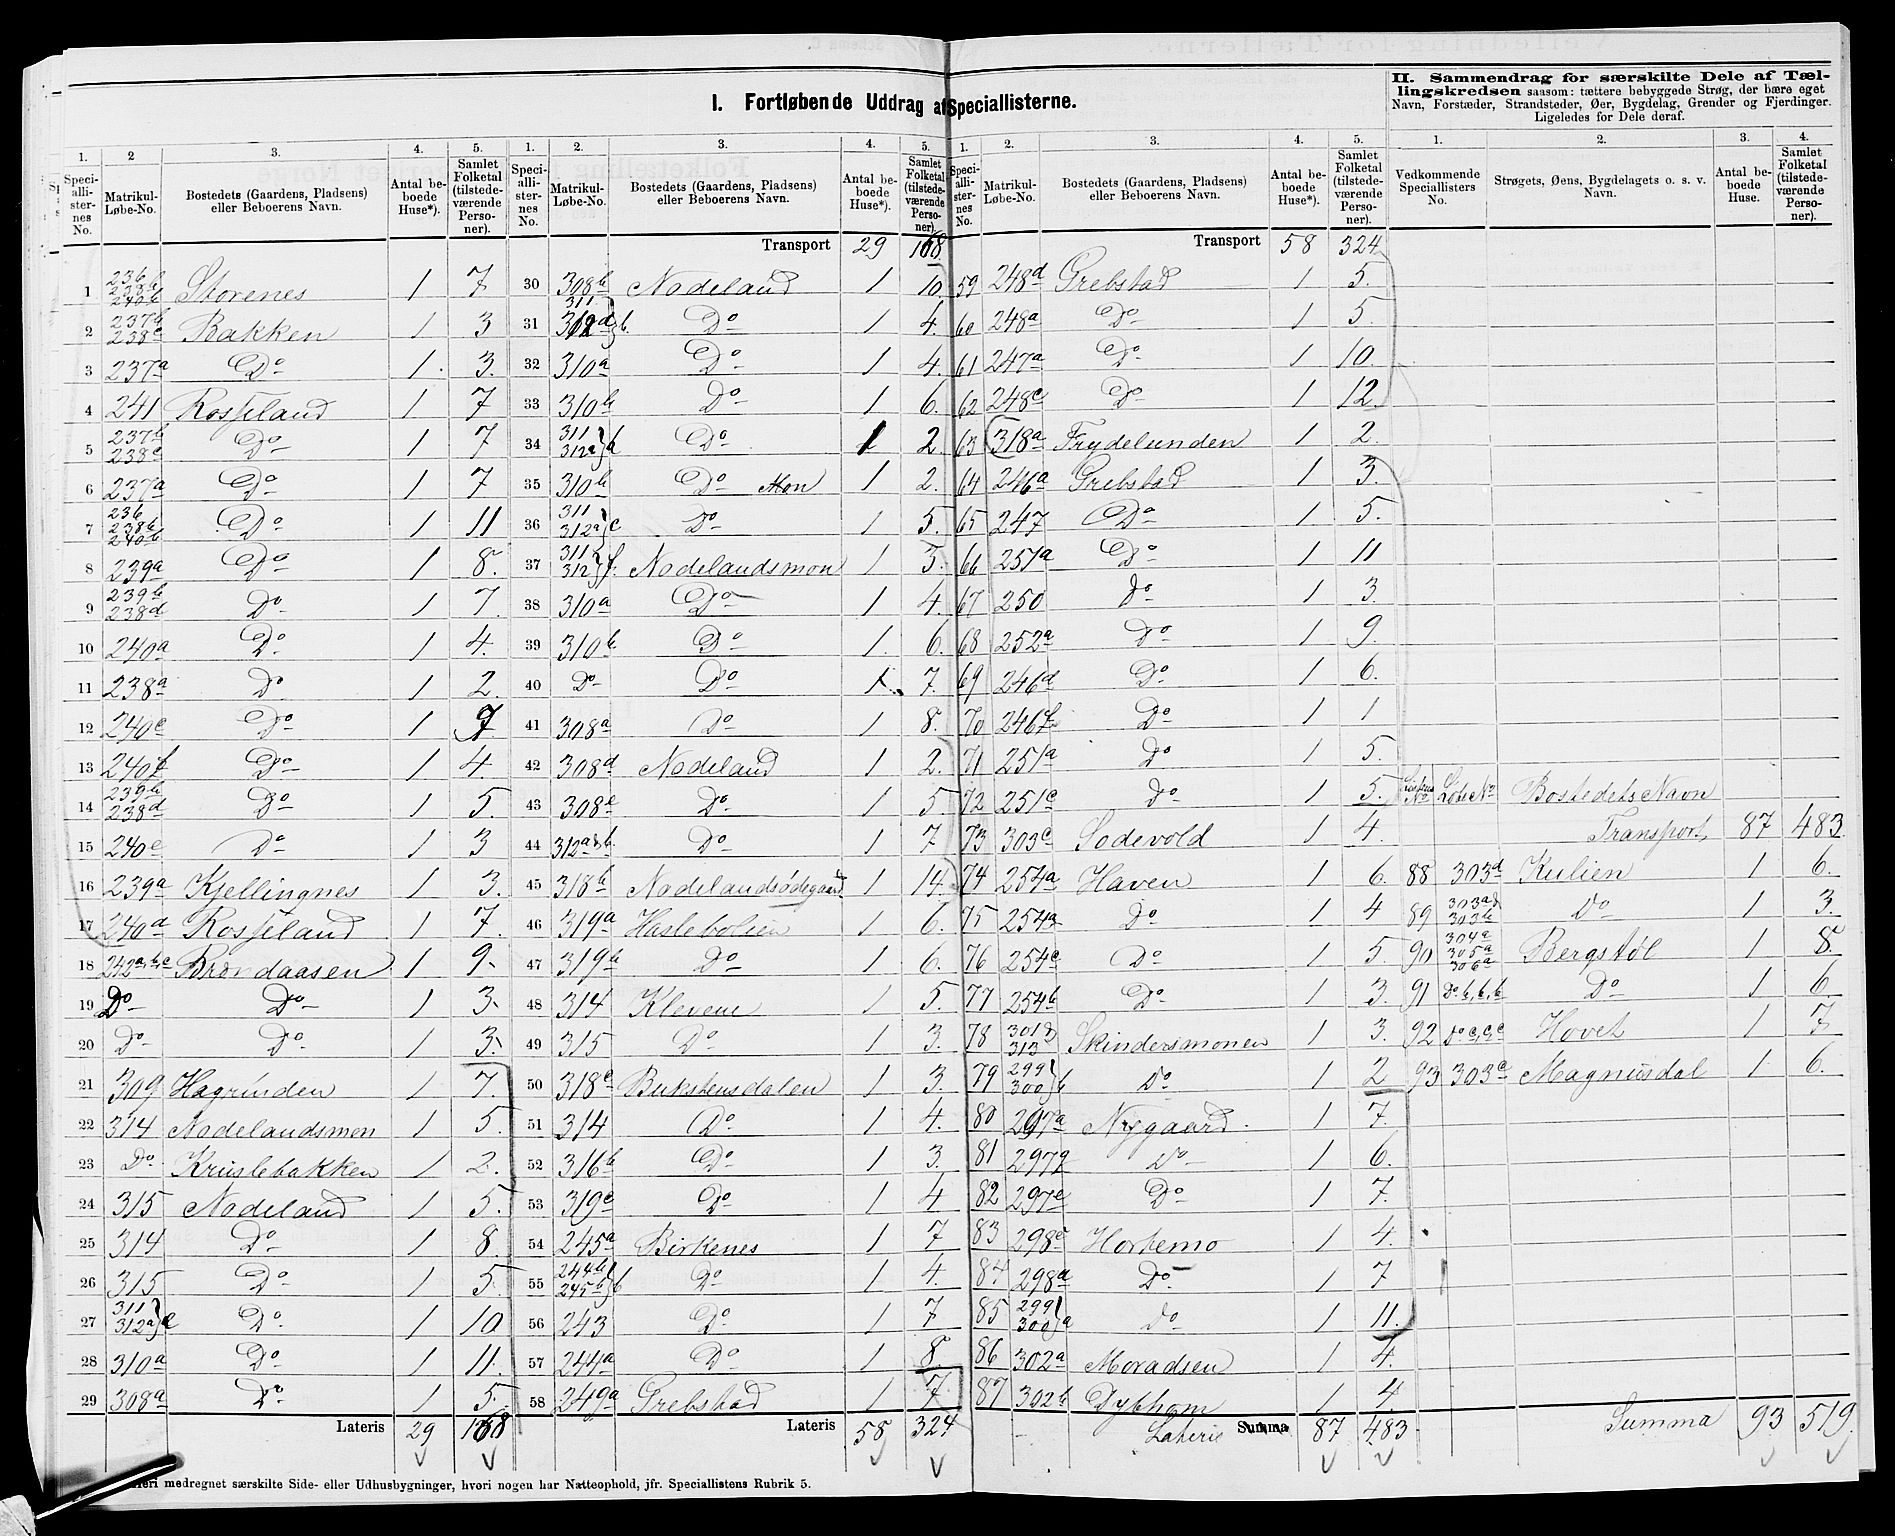 I. Fortløbende Uddrag af Speciallisterne.
II. Sammendrag for særskilte Dele af Tællingskredsen saasom: tættere bebyggede Strøg, der bære eget
Navn, Forstæder, Strandsteder, Øer, Bygdelag, Grender og Fjerdinger.
Ligeledes for Dele deraf.
1. 2 3. 4. 5.
Speciallisternes No. Matrikul-Løbe-No. Bostedets (Gaardens, Pladsens) eller Beboerens Navn. Antal beboede Huse*). Samlet Folketal (tilstedeværende Personer).
1 236 238b 240b Storenes 1 7
2 237b 238c Bakken 1 3
3 237a Do 1 3.
4 241 Rosseland 1 7
5 237b 238c Do 1 7
6 237a Do 1 7
7 236 238b 240b Do 1 11
8 239a Do 1 8.
9 239b 238d Do 1 7.
10 240a Do 1 4.
11 238a Do 1 2.
12 240c Do 1
13 240f Do 1 4.
14 239b 238d Do 1 5
15 240e Do 1 3
16 239a Kjellingnes 1 3.
17 240d Rosseland 1 7.
18 242a,b,c Brøndaasen 1 9.
19 Do Do 1 3.
20 Do Do 1 3.
21 309 Hagrinden 1 7.
22 314 Nodelandsmon 1 5.
23 Do Kruslebakken 1 2.
24 315 Nodeland 1 5.
25 314 Do 1 8.
26 315 Do 1 5
27 311 312a} e Do 1 10
28 310a Do 1 11.
29 308a Do 1 5.
Lateris 29 168
1. 2. 3. 4. 5.
Speciallisternes No. Matrikul-Løbe-No. Bostedets (Gaardens, Pladsens) eller Beboerens Navn. Antal beboede Huse*). Samlet Folketal (tilstedeværende Personer).
Transport 29 168
30 308b Nodeland 1 10.
31 311 312a} b. Do 1 4.
32 310a Do 1 4.
33 310b Do 1 6.
34 311 312a} Do 1 2.
35 310b Do Mon 1 2.
36 311 312a} c Do 1 5.
37 311 312} f. Nodelandsmon 1 3.
38 310a Do 1 4.
39 310b Do 1. 6.
40 Do Do 1. 7.
41 308a Do 1 8.
42 308d Nodeland 1 2.
43 308e Do 1 5
44 312a&b Do 1 7
45 318b Nodelandsødegaard 1 14.
46 319a Haslebolien 1 6.
47 319b Do 1 6.
48 314 Kleven 1 5.
49 315 Do 1 3.
50 318c Bukstensdalen 1 3.
51 314 Do 1 4.
52 316b Do 1 3.
53 319c Do 1 4
54 245a Birkenes 1 7
55 244b 245b} b Do 1 4.
56 243 Do 1 7
57 244a Do 1 8.
58 249a Grebstad 1 7
Lateris 58 324
1. 2. 3. 4. 5.
Speciallisternes No. Matrikul-Løbe-No. Bostedets (Gaardens, Pladsens) eller Beboerens Navn. Antal beboede Huse*). Samlet Folketal (tilstedeværende Personer).
Transport 58 324
59 248d Grebstad 1 5.
60 248a Do 1 5.
61 247a Do 1 10.
62 248c Do 1 12.
63 318a Frydelunden 1 2.
64 246a Grebstad 1 3.
65 247 Do 1 5.
66 251a Do 1 11
67 250 Do 1 3.
68 252a Do 1 9.
69 246d Do 1 6.
70 246f Do 1 1
71 251a Do 1 5.
72 251c Do 1 5.
73 303c Sodevold 1 4.
74 254a Haven 1 6.
75 254a Do 1 4
76 254c Do 1 5.
77 254b Do 1 3.
78 301& 313 Skindersmonen 1 3.
79 299 300} b Do 1 2
80 297a Nygaard 1 7.
81 297 Do 1 6.
82 297c Do 1 7.
83 298c Hortemo 1 4.
84 298a Do 1 7
85 299 300} a Do 1 11.
86 302a Moradsen 1 4.
87 302b Dybhom 1 4.
Lateris Summa 87 483
1. 2. 3. 4.
Vedkommende Speciallisters No. Strøgets, Øens, Bygdelagets o. s. v. Navn. Antal beboede Huse. Samlet Folketal (tilstedeværende Personer).
No Løbe No Bostedets Navn
Transport, 87 483
88 303d Kulien 1 6.
89 303a& 303b Do 1 3.
90 304a 305a 306a Bergstøl 1 8.
91 Do b, b, b Do 1 6
92 Do c, c, c Hovet 1 7
93 303e Magnusdal 1 6.
Summa 93 519.
medregnet særskilte Side- eller Udhusbygninger, hvori nogen har Natteophold, jfr. Speciallistens Rubrik 5.